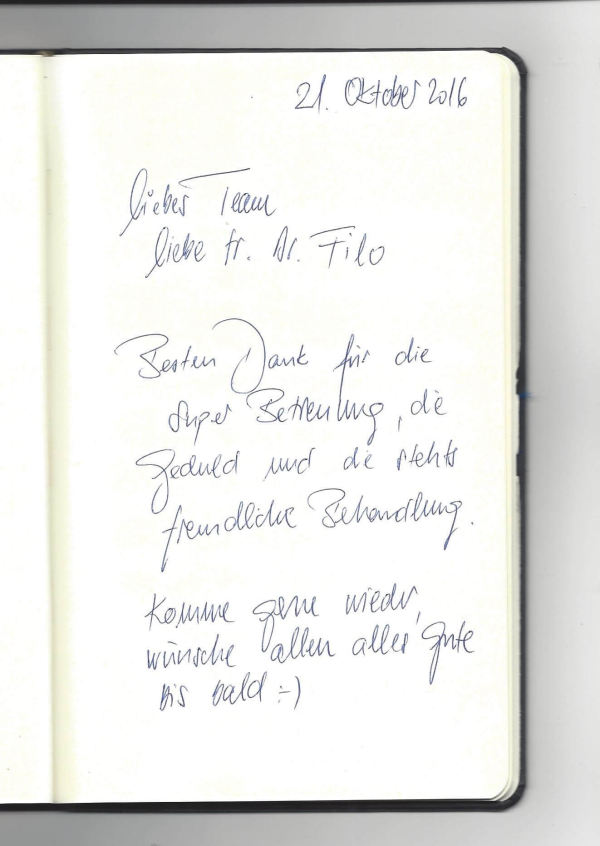 21. Oktober 2016
liebes Team
liebe Fr. Dr. Filo
Besten Dank für die
super Betreuung, die
Geduld und die stehts
freundliche Behandlung.
Komme gerne wieder,
wünsche allen alles Gute
bis bald :-)